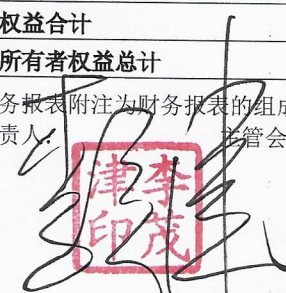 权益合计
所有者权益总计
务报表附注为财务报表的组成
责人： 主管会
李茂
津印